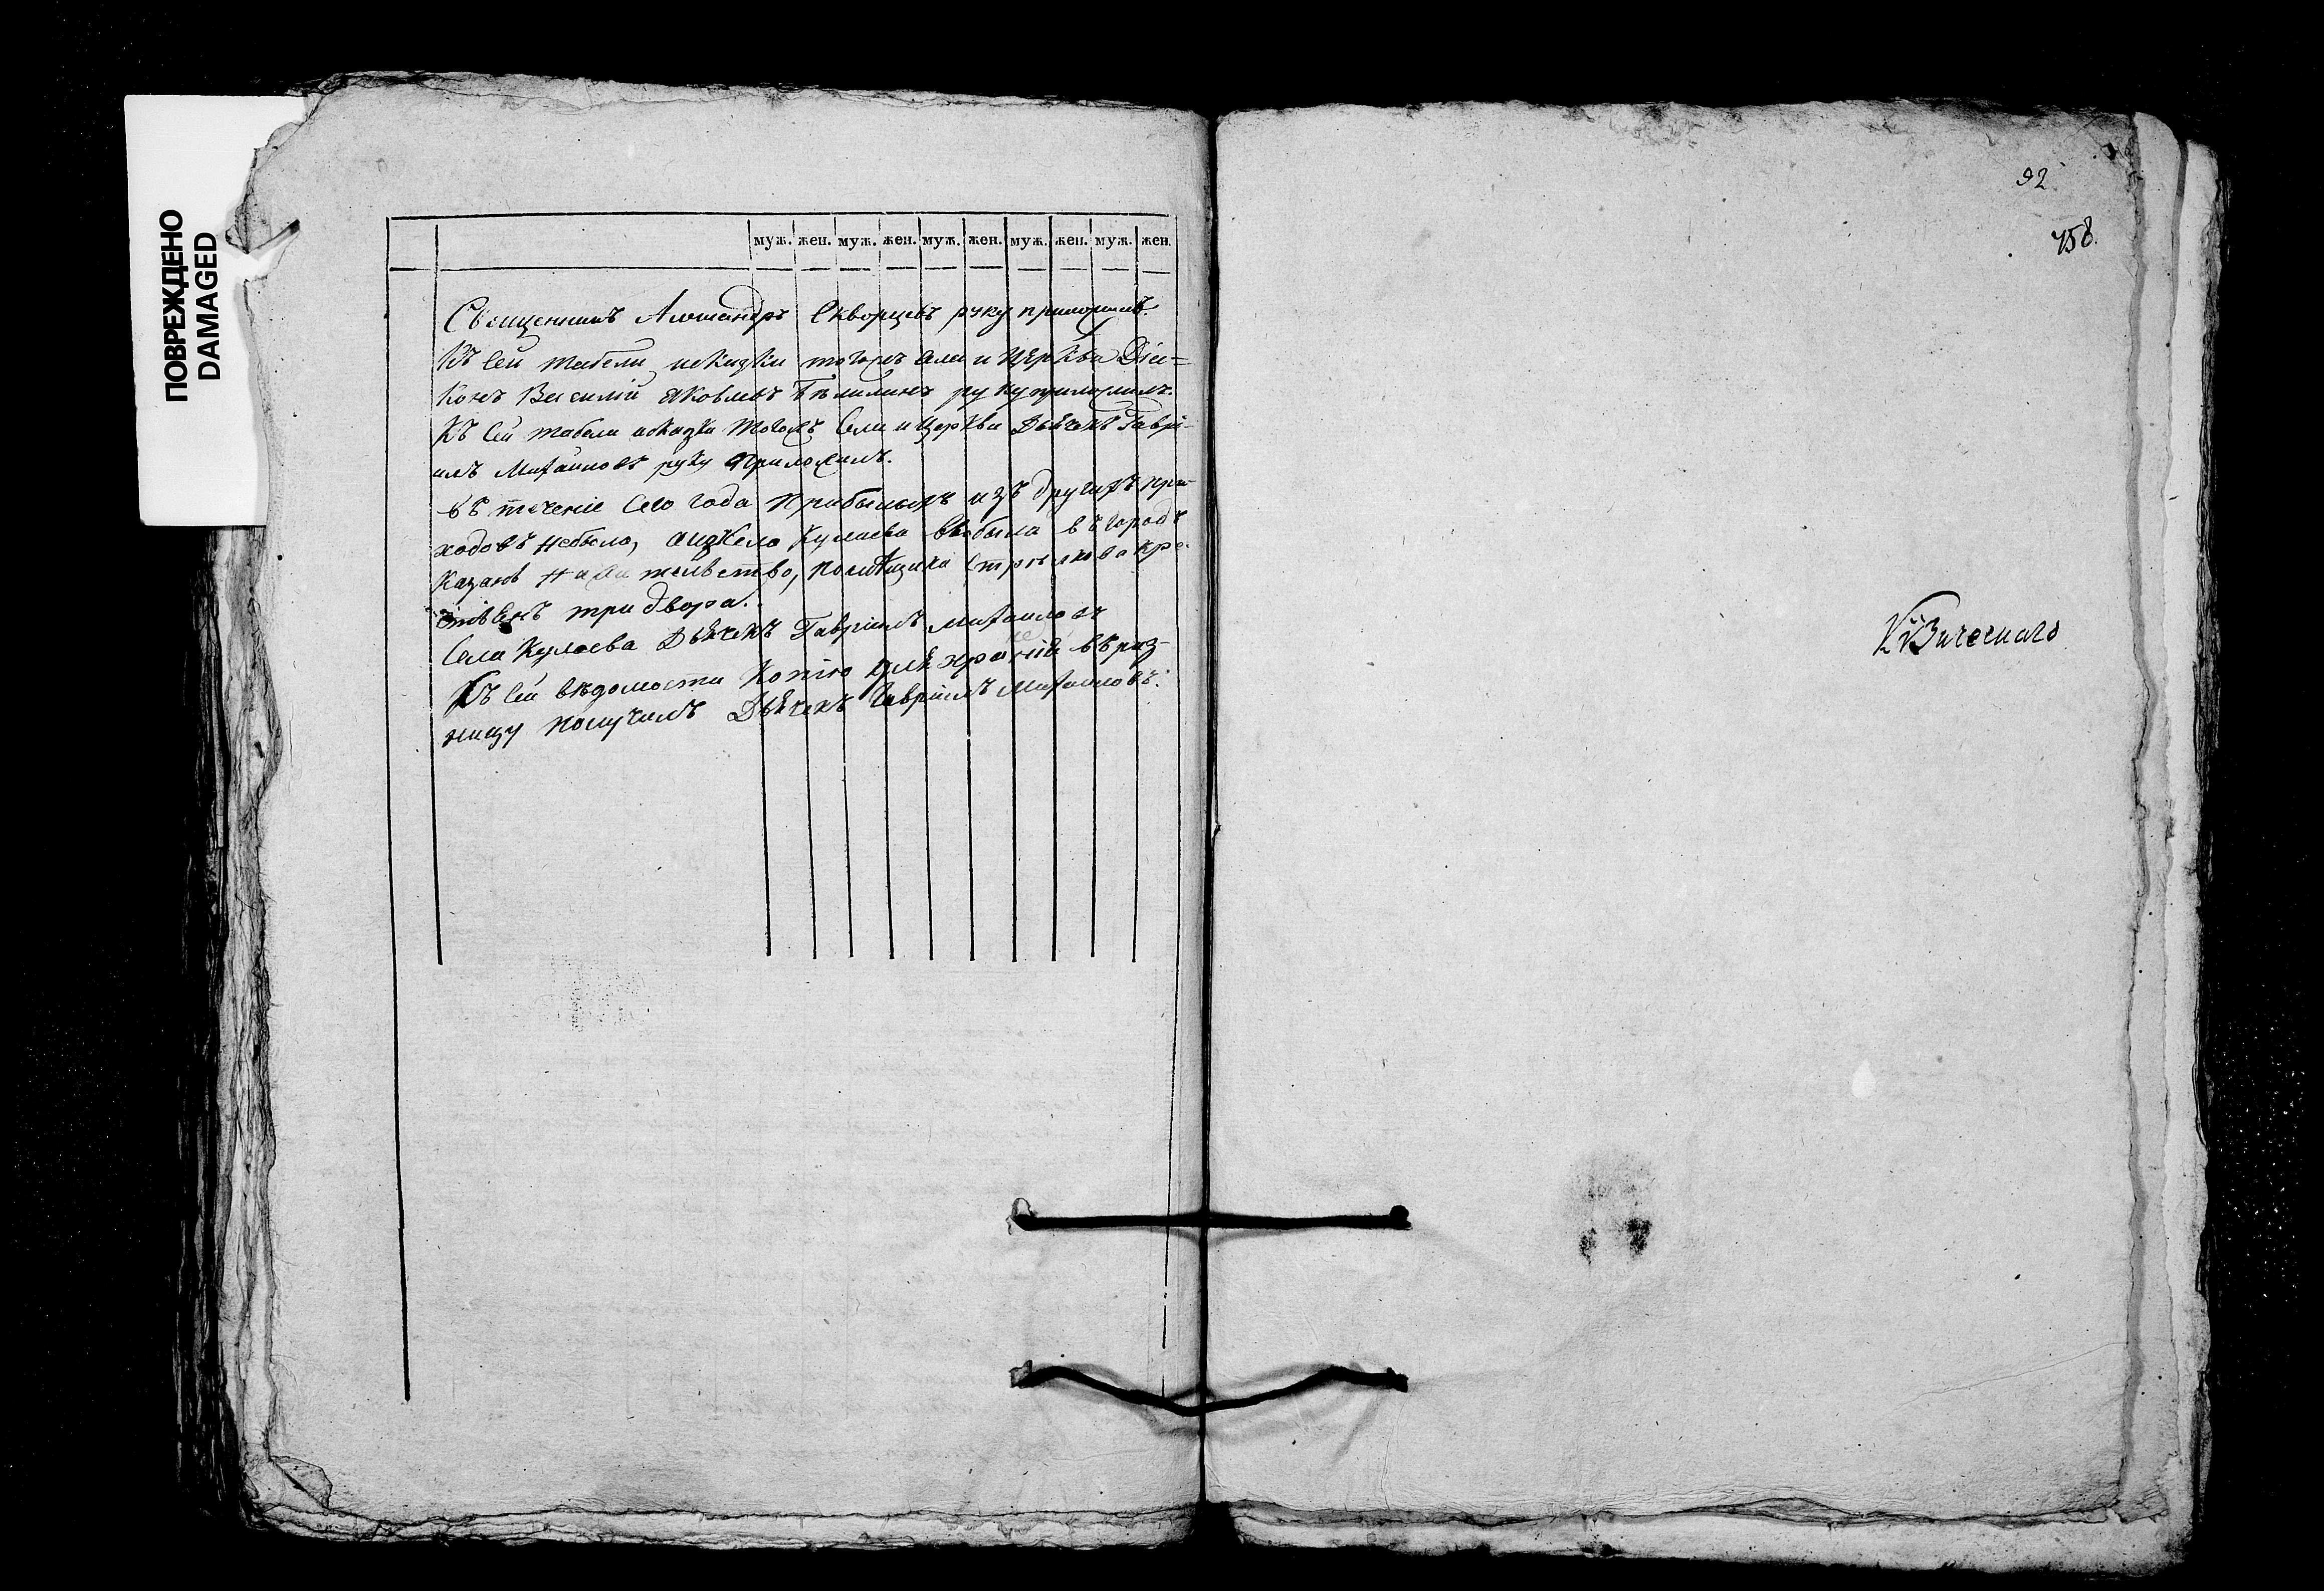 ПОВРЕЖДЕНО
DAMAGED
муж. жен. муж. жен. муж. жен. муж. жен. муж. жен.
Священникъ Александръ Скворцовъ руку приложилъ.
Къ сей табели исказки тогожъ села и церкви Діа=
конъ Василій Яковлевъ руку приложилъ.
Къ сей табели исказки тогожъ села и церкви Дьячекъ Гаврі-
илъ Михайловъ руку приложилъ.
въ теченіе сего года прибылыхъ изъ другихъ при-
ходовъ небыло, а изъ села Кулаева выбыла въ городъ
Казань на жительство, помѣщика Стрѣлкова кре-
стьянъ три двора.
Села Кулаева Дьячекъ Гавріилъ Михаиловъ
Къ сей вѣдомости копію для храненія въ риз-
ницу получилъ Дьячекъ Гавріилъ Михаиловъ.
92
758.